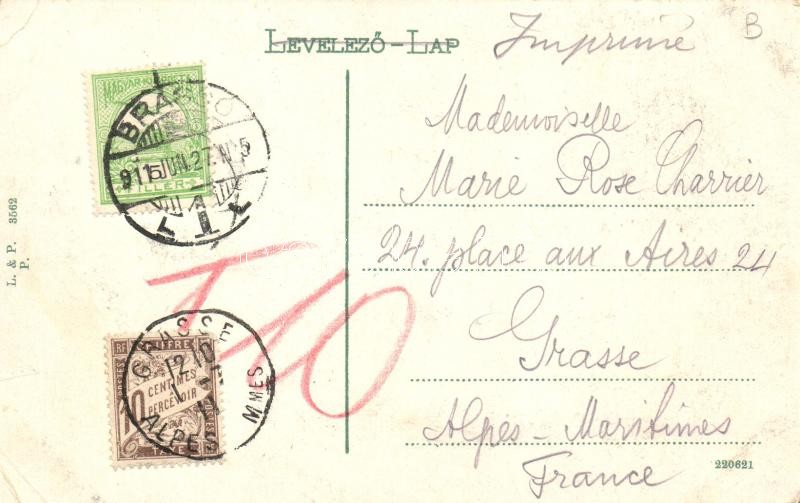 LEVELEZŐ-LAP
Imprimé
B
MAGYAR KIR. POSTA
FILLÉR
BRASSÓ
911 JUN. 27. N 5
1
L. & P. 3562
P.
Mademoiselle
Marie Rose Charrier
24. place aux Aires 24
Grasse
Alpes-Maritimes
France
T10
RF CHIFFRE
POSTES
10
CENTIMES
À
PERCEVOIR
TAXE
GRASSE
12 10
ALPES Mmes
220621